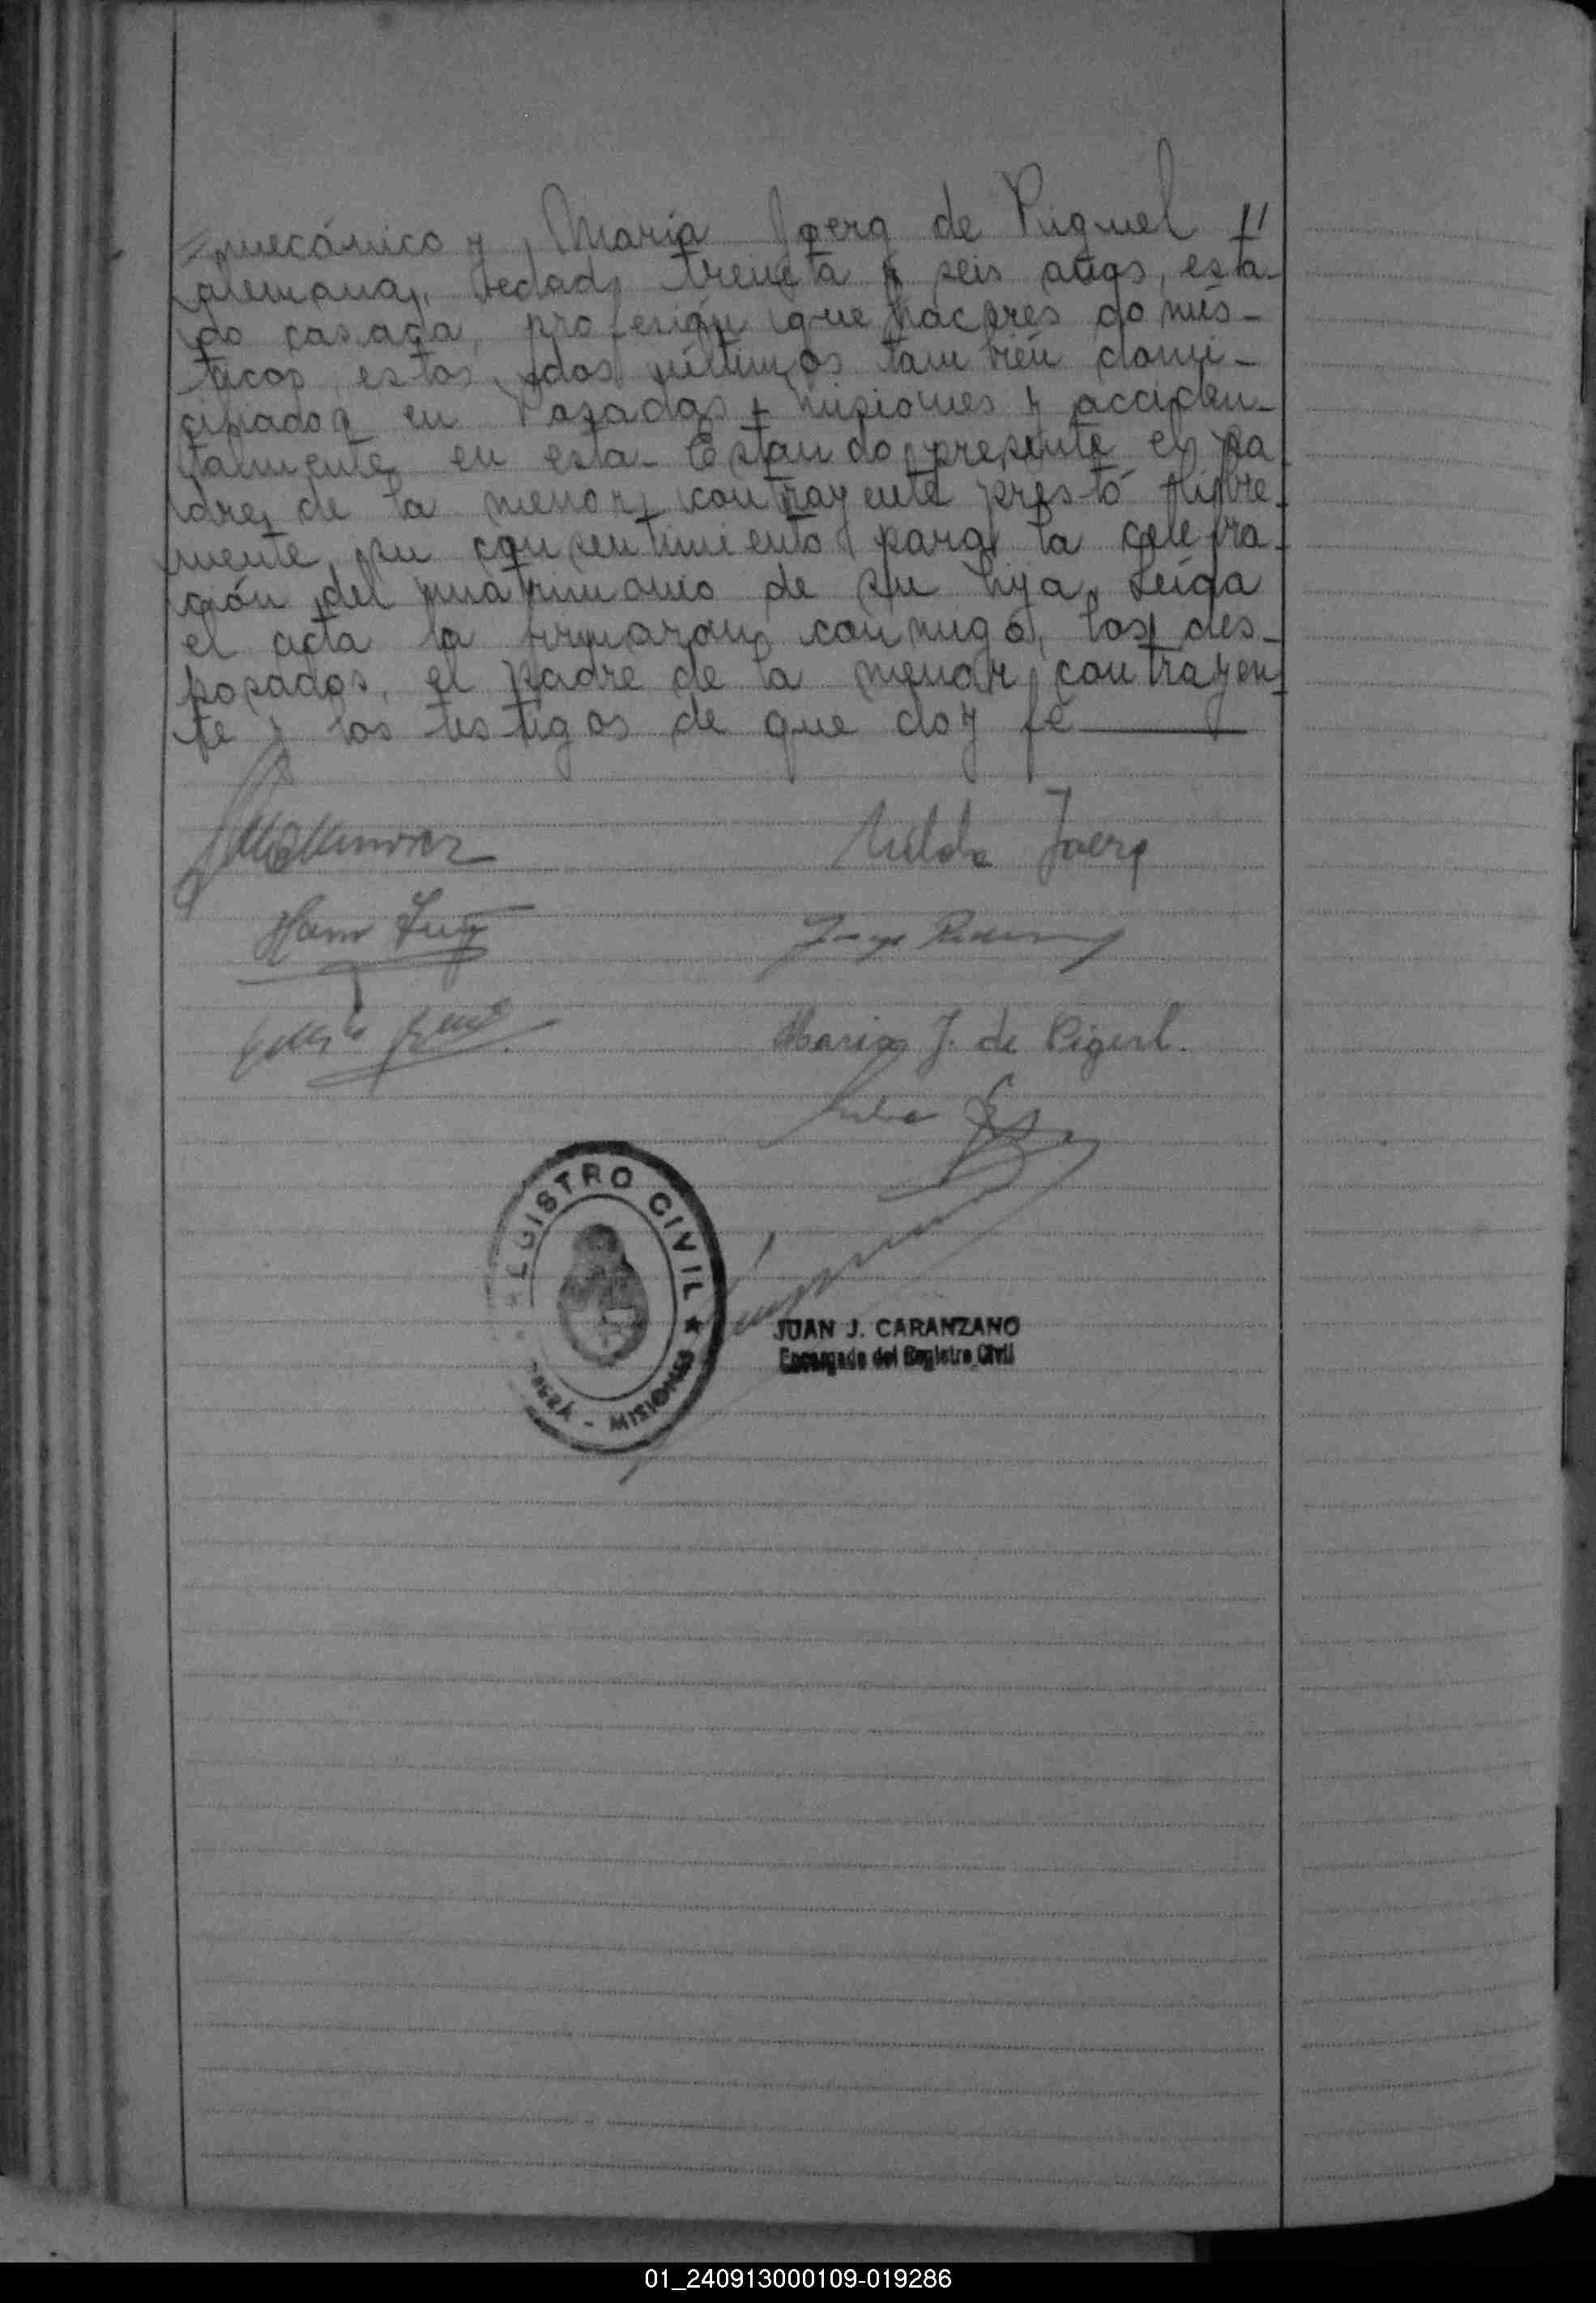 mecánico y María Joerg de Piguel //
alemana, edad treinta y seis años, esta-
do casada, profesión que haceres domés-
ticos, estos dos últimos también domi-
ciliados en Posadas, Misiones y acciden-
talmente en esta. Estando presente el pa
dre de la menor contrayente prestó libre-
mente su consentimiento para la celebra-
ción del matrimonio de su hija. Leída
el acta la firmaron conmigo, los des-
posados, el padre de la menor contrayen-
te y los testigos de que doy fé
Hilda Joerg
Maria J. de Pigerl.
REGISTRO CIVIL ★
- MISIONES
JUAN J. CARANZANO
Encargado del Registro Civil
01_240913000109-019286